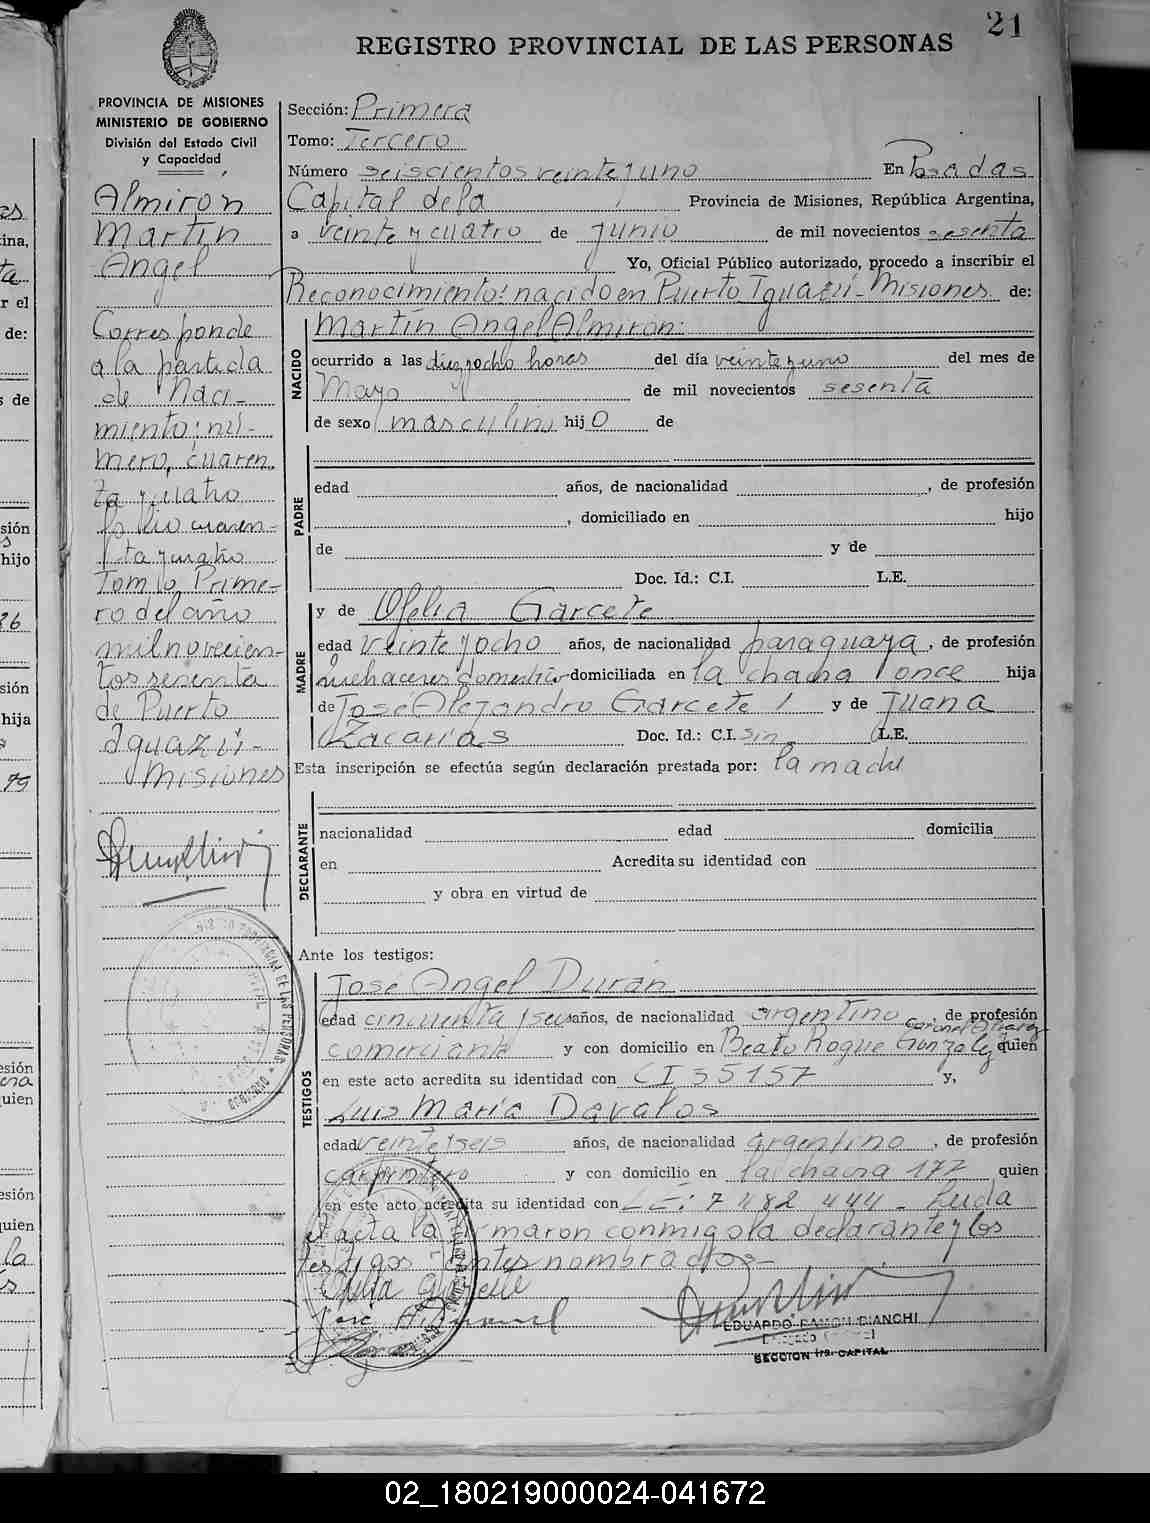 21
REGISTRO PROVINCIAL DE LAS PERSONAS
PROVINCIA DE MISIONES
MINISTERIO DE GOBIERNO
División del Estado Civil
y Capacidad
Almirón
Martín
Angel
Corresponde
a la partida
de Naci-
miento: nú-
mero, cuaren
ta y cuatro
folio cuaren-
ta y cuatro
Tomo Prime-
ro del año
mil novecien-
tos sesenta
de Puerto
Iguazú -
Misiones
Sección: Primera
Tomo: Tercero
Número seiscientos veinte y uno En Posadas
Capital de la Provincia de Misiones, República Argentina,
a veinte y cuatro de junio de mil novecientos sesenta
Yo, Oficial Público autorizado, procedo a inscribir el
Reconocimiento: nacido en Puerto Iguazú - Misiones de:
NACIDO
Martín Angel Almirón:
ocurrido a las diez y ocho horas del día veinte y uno del mes de
Mayo de mil novecientos sesenta
de sexo masculino hijo de
PADRE
edad años, de nacionalidad , de profesión
, domiciliado en hijo
de y de
Doc. Id.: C.I. L.E.
MADRE
y de Ofelia Garcete
edad veinte y ocho años, de nacionalidad paraguaya, de profesión
quehaceres domésticos domiciliada en la chacra once hija
de José Alejandro Garcete y de Juana
Zacarías Doc. Id.: C.I. sin L.E.
Esta inscripción se efectúa según declaración prestada por: la madre
DECLARANTE
nacionalidad edad domicilia
en Acredita su identidad con
y obra en virtud de
Ante los testigos:
TESTIGOS
José Angel Durán
edad cincuenta y seis años, de nacionalidad argentino, de profesión
comerciante y con domicilio en Beato Roque González quien
en este acto acredita su identidad con CI 55157 y,
Luis María Davalos
edad veinte y seis años, de nacionalidad argentino, de profesión
carpintero y con domicilio en la chacra 177 quien
en este acto acredita su identidad con L E: 7 482 444 - Leida
el acta la firmaron conmigo la declarante y los
testigos antes nombrados -
EDUARDO RAMON BIANCHI
SECCION 1ra. CAPITAL
02_180219000024-041672